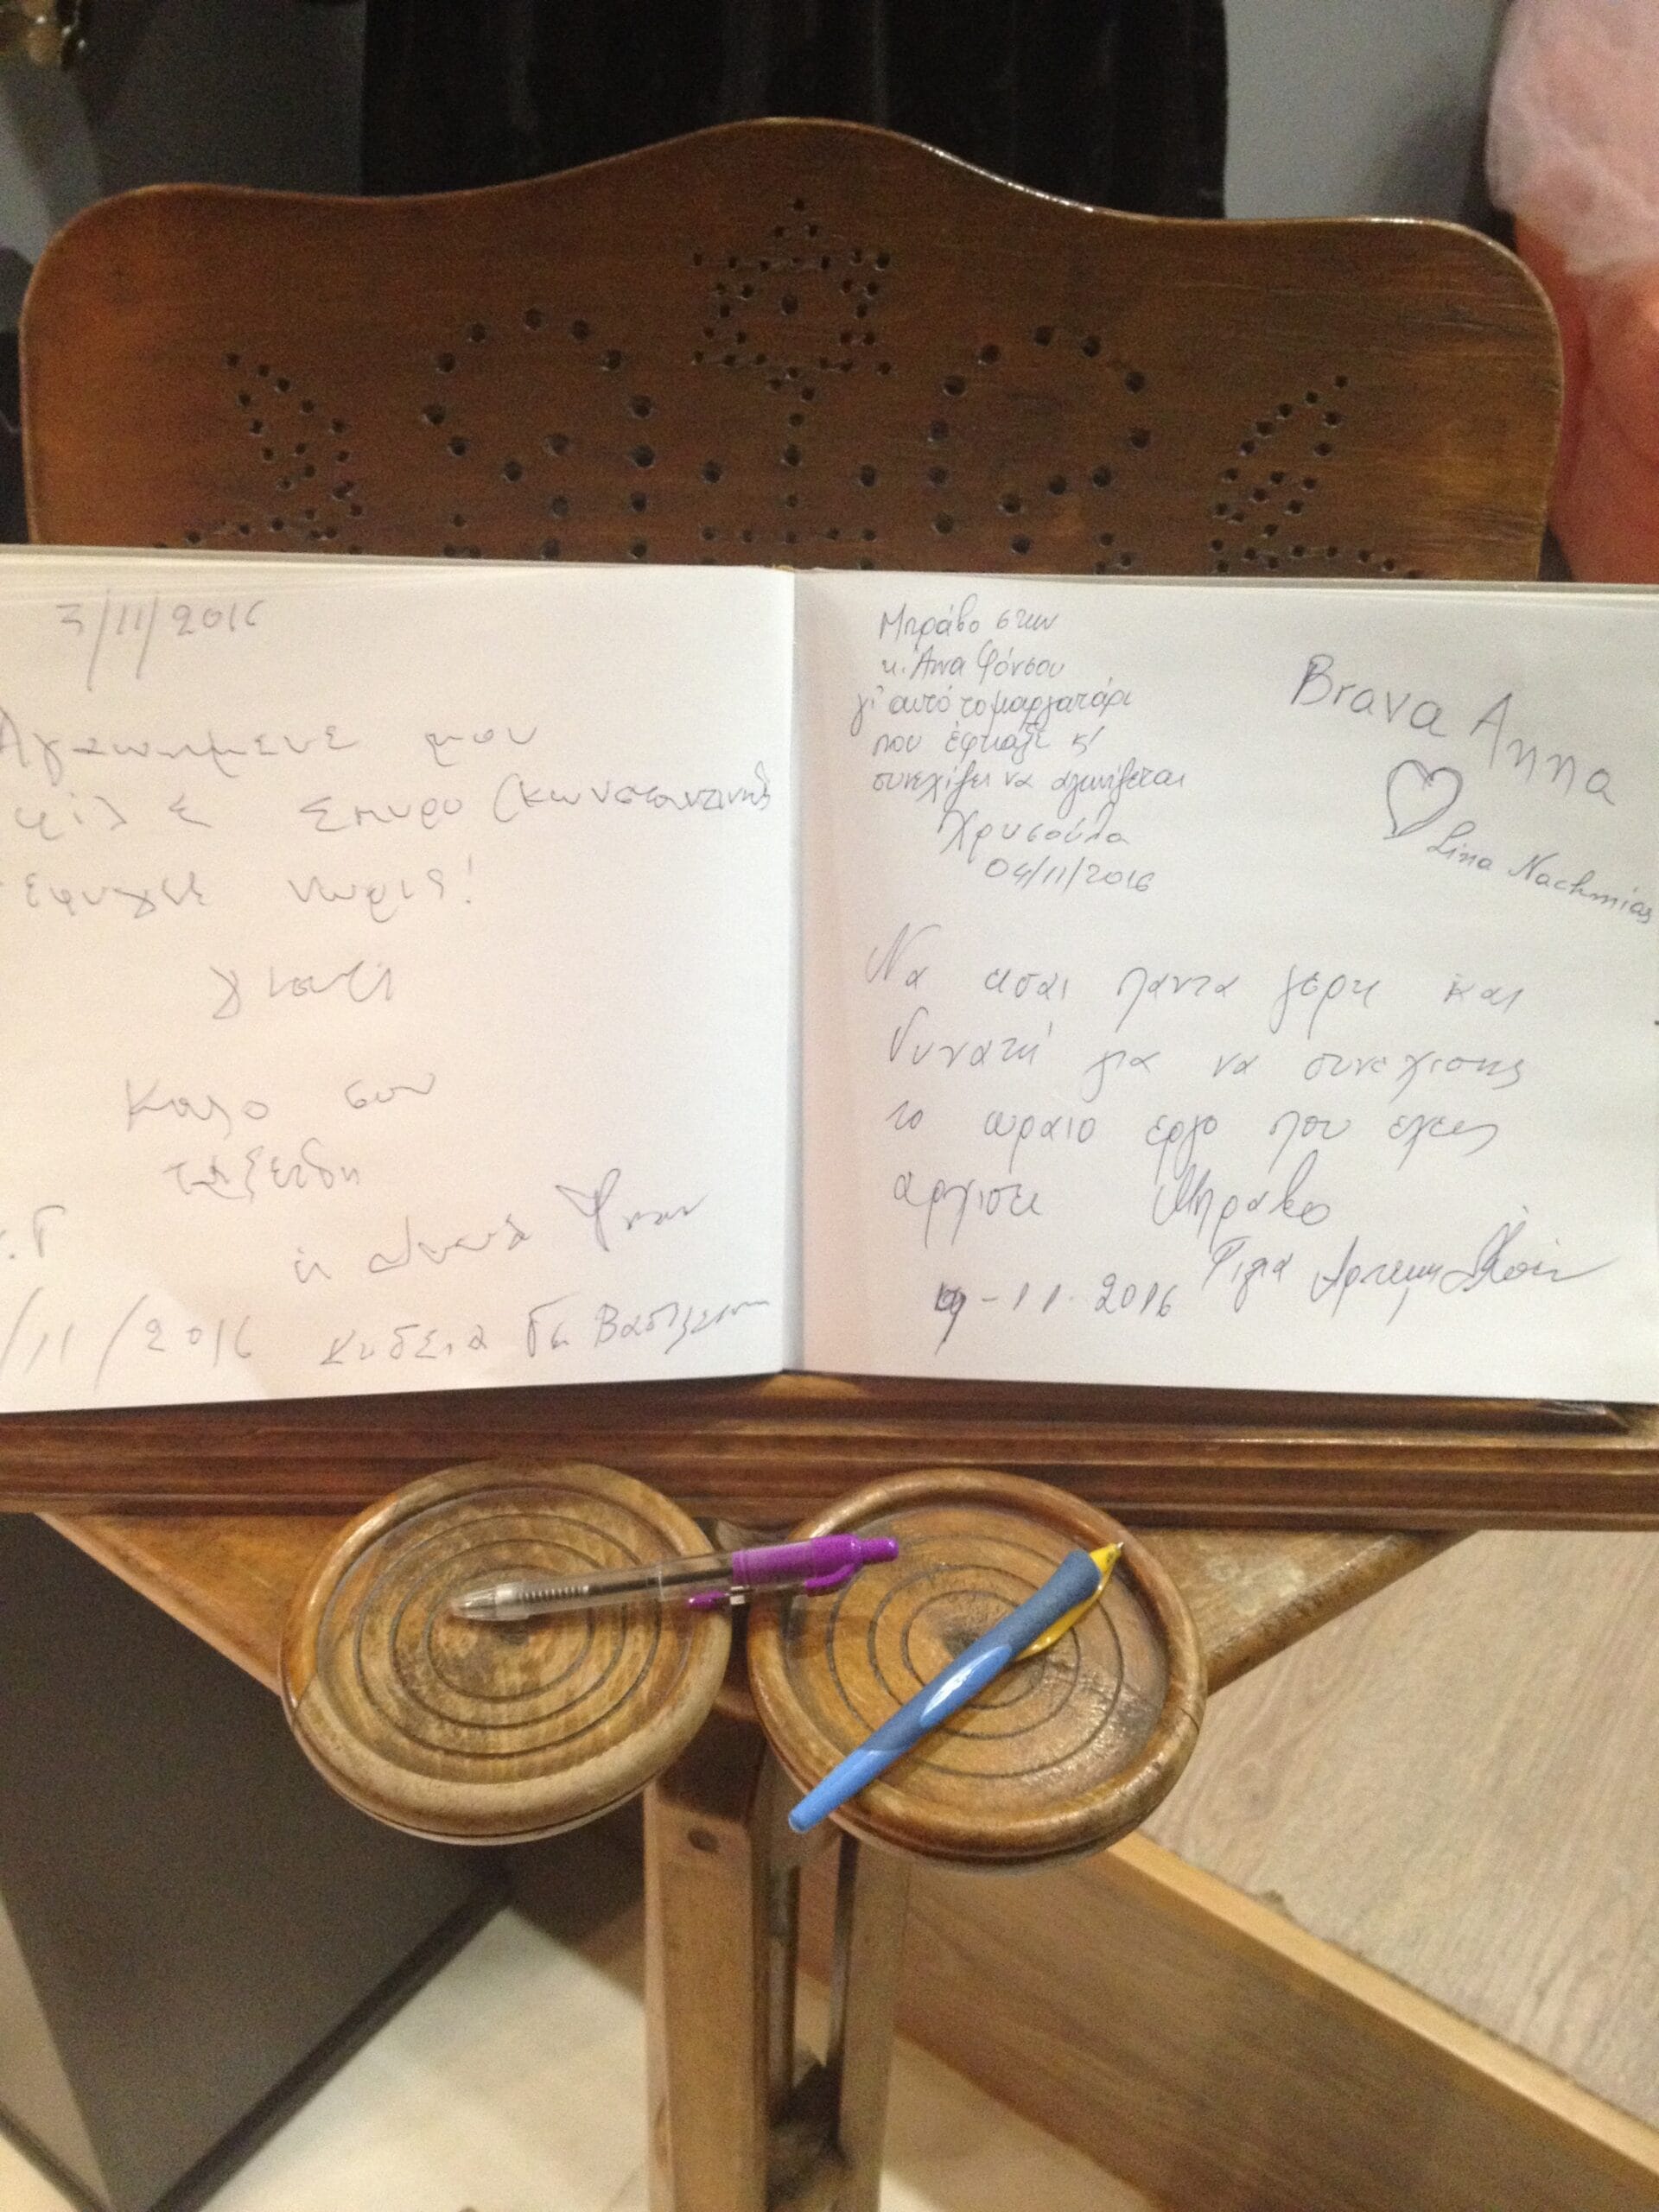 3/11/2016
Αγαπημενε μου
φιλε Σπυρο (Κωνσταντινε
εφυγες νωρις!
γιατι
Καλο σου
ταξειδι
κ
.Γ
/11/2016 Κηδεια
Μπράβο στην
κ. Άννα Φόνσου
γι' αυτό το μαργαριτάρι
που έφτιαξε κ'
συνεχίζει να αγωνίζεται
Χρυσούλα
04/11/2016
Brava Anna
Lina Nachmias
Να εισαι παντα γερη και
δυνατή για να συνεχισης
το ωραιο εργο που εχεις
αρχισει Μπραβο
Φιλια Αρτεμης
-11-2016